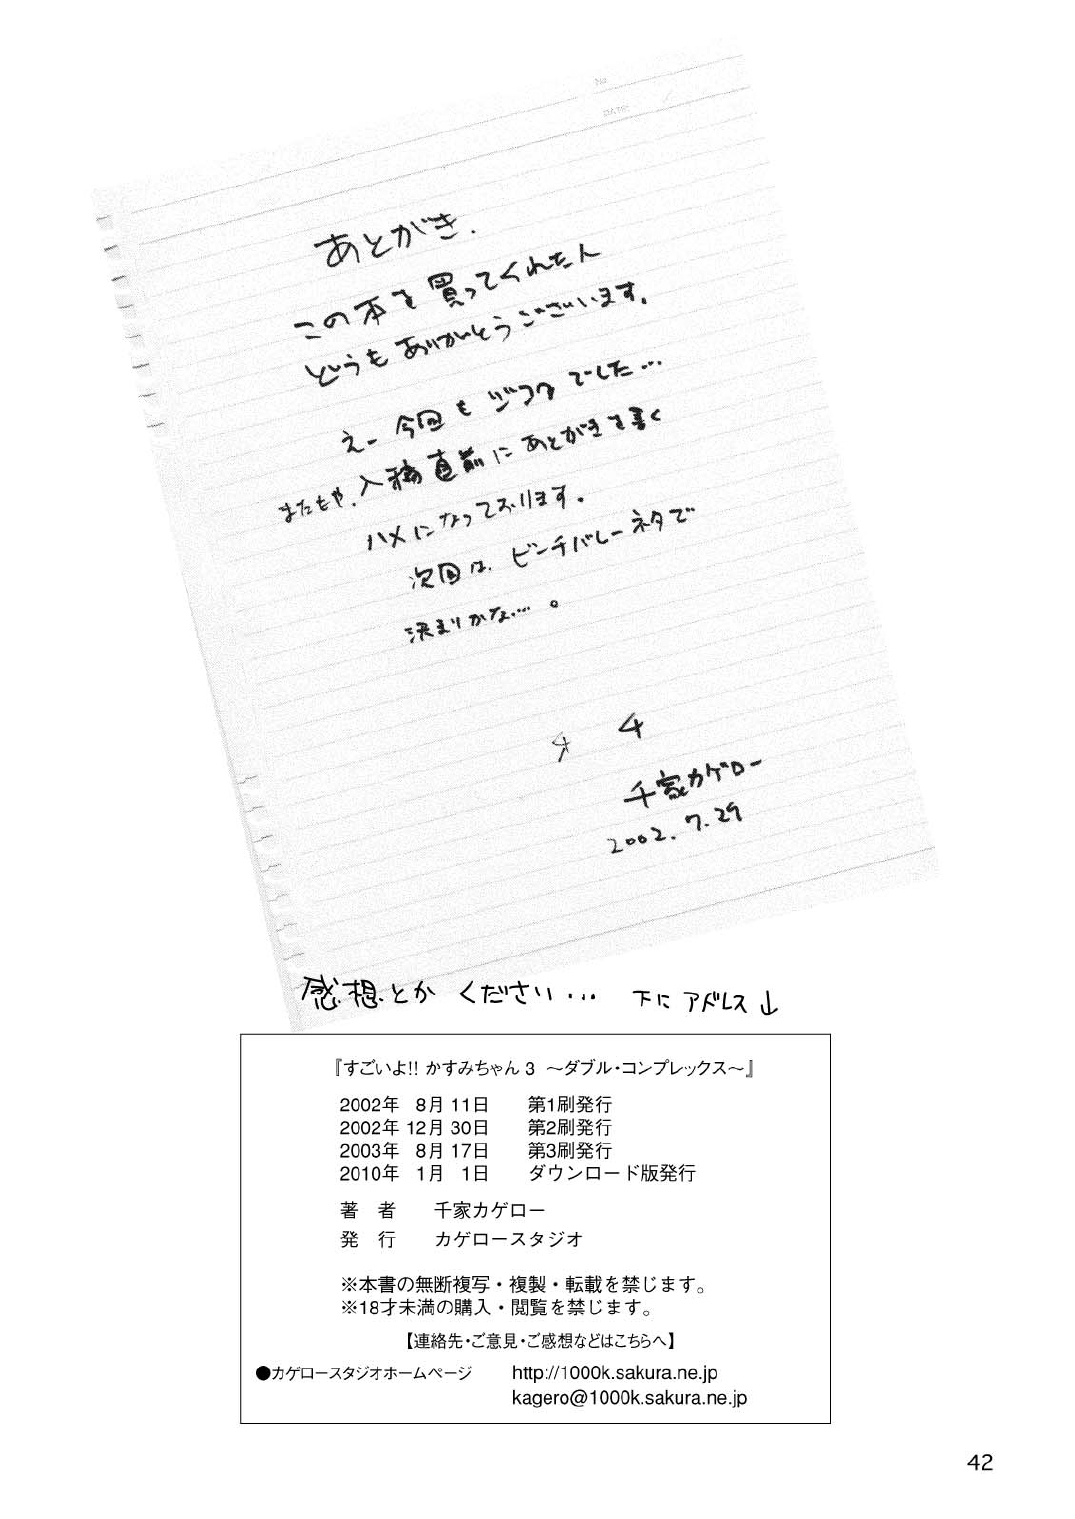 No.
DATE
あとがき.
この本を買ってくれた人
どうもありがとうございます.
えー 今回も ジブクでした…
またもや.入稿直前にあとがきを書く
ハメになっております.
次回は.ビーチバレーネタで
決まりかな…。
千家カゲロー
2002.7.29
感想とか ください… 下に アドレス↓
『すごいよ!! かすみちゃん 3 ～ダブル・コンプレックス～』
2002年 8月 11日 第1刷発行
2002年 12月 30日 第2刷発行
2003年 8月 17日 第3刷発行
2010年 1月 1日 ダウンロード版発行
著 者 千家カゲロー
発 行 カゲロースタジオ
※本書の無断複写・複製・転載を禁じます。
※18才未満の購入・閲覧を禁じます。
【連絡先・ご意見・ご感想などはこちらへ】
●カゲロースタジオホームページ http://1000k.sakura.ne.jp
kagero@1000k.sakura.ne.jp
42